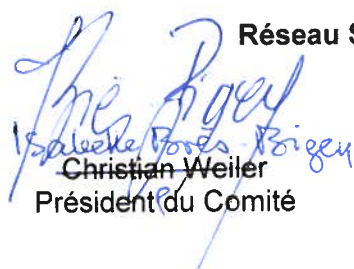 Réseau S
Isabelle Borès-Bigey
Christian Weiler
Président du Comité